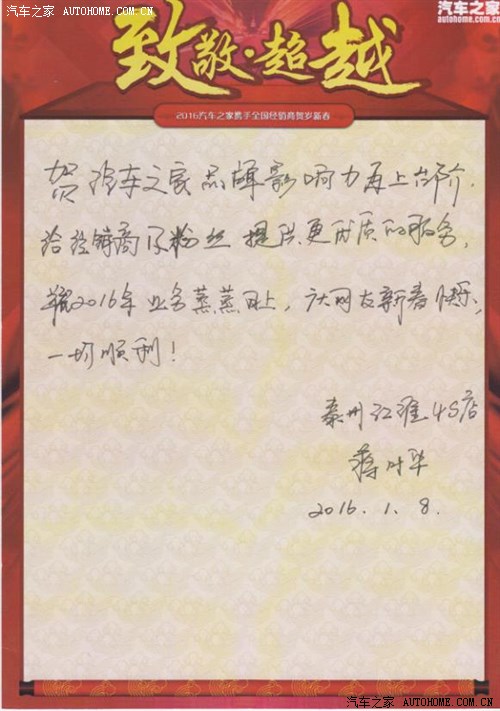 汽车之家 AUTOHOME.COM.CN
汽车之家
autohome.com.cn
致敬·超越
2016汽车之家携手全国经销商贺岁新春
贺汽车之家品牌影响力再上台阶.
给经销商及粉丝提供更优质的服务,
2016年业务蒸蒸日上,广大网友新春快乐,
一切顺利!
泰州江淮4S店
蒋叶华
2016.1.8.
汽车之家 AUTOHOME.COM.CN